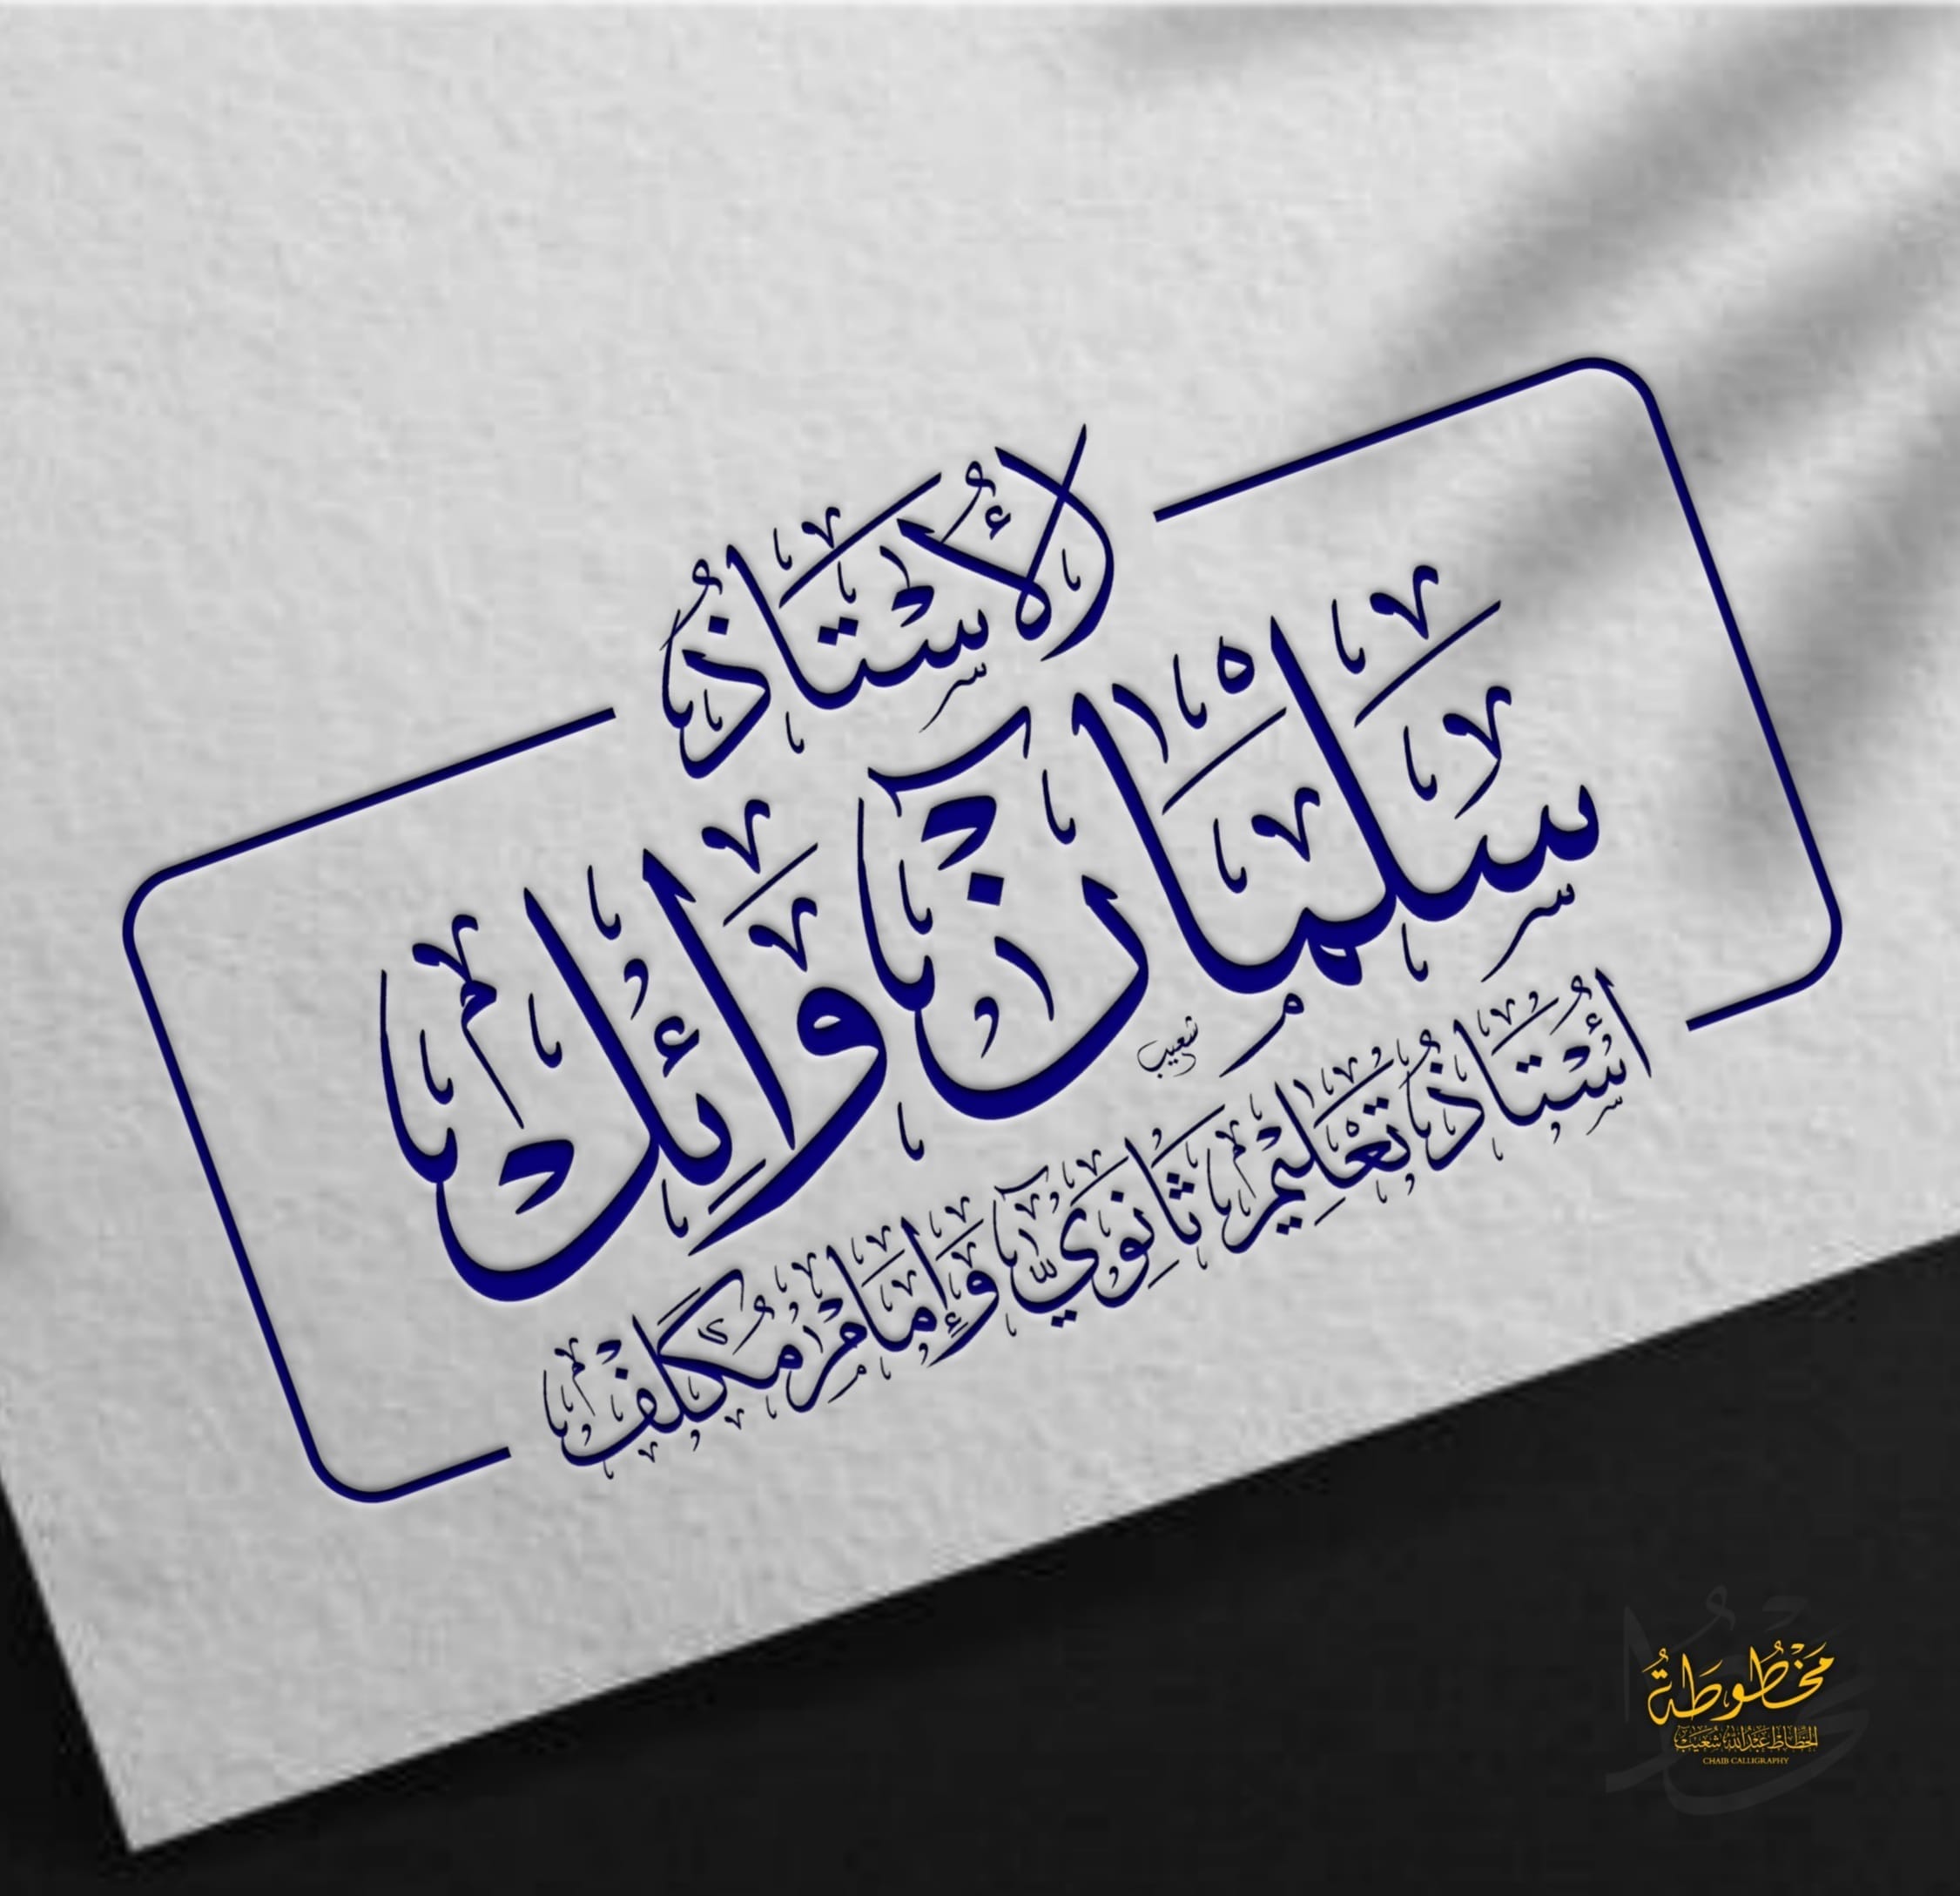 الأُسْتَاذُ
سَلْمَان وَائِل
شعيب
أُسْتَاذُ تَعْلِيم ثَانَوِيّ وَإِمَام مُكَلَّف
مَخْطُوطَةُ
الخطاط عبد الله شعيب
CHAIB CALLIGRAPHY